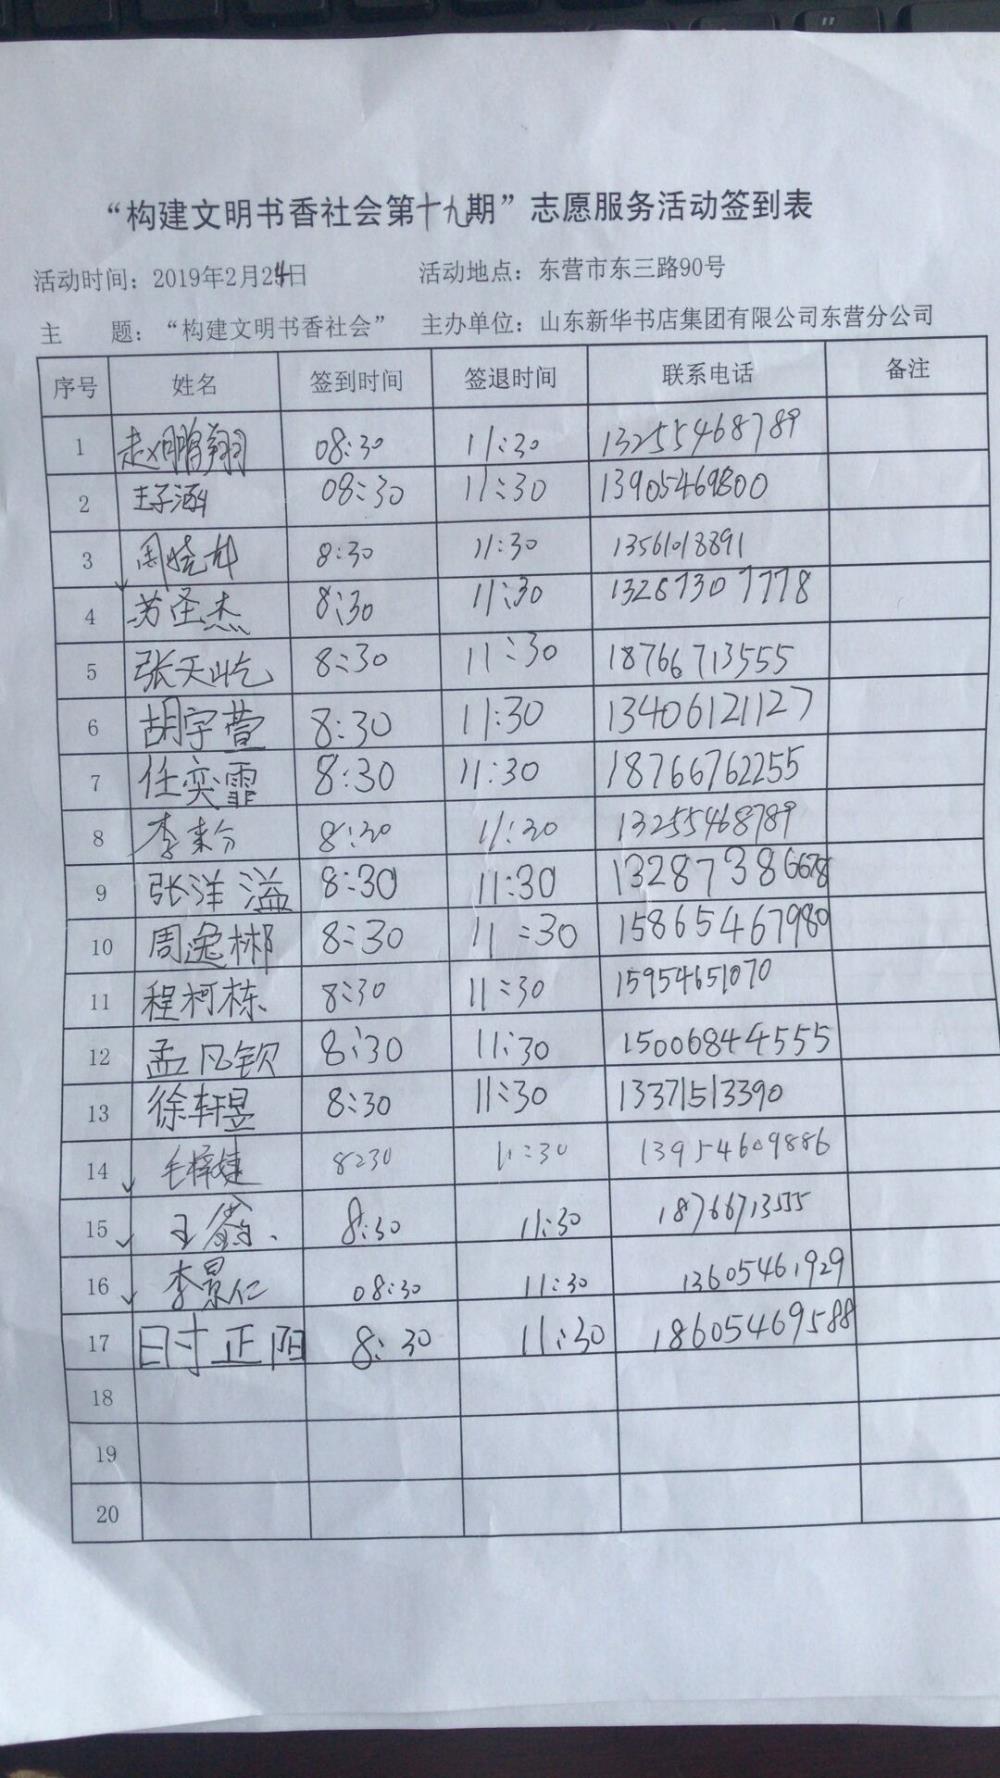 “构建文明书香社会第十九期”志愿服务活动签到表
活动时间：2019年2月24日 活动地点：东营市东三路90号
主 题：“构建文明书香社会” 主办单位：山东新华书店集团有限公司东营分公司
序号 姓名 签到时间 签退时间 联系电话 备注
1 赵鹏翔 08:30 11:30 13255468789
2 王子涵 08:30 11:30 13905469800
3 周晓 8:30 11:30 13561018891
4 苏圣杰 8:30 11:30 13287307778
5 张天屹 8:30 11:30 18766713555
6 胡宇萱 8:30 11:30 13406121127
7 任奕霏 8:30 11:30 18766762255
8 李 8:30 11:30 13255468789
9 张洋溢 8:30 11:30 13287386678
10 周逸彬 8:30 11:30 15865467980
11 程柯栋 8:30 11:30 15954651070
12 孟凡钦 8:30 11:30 15006844555
13 徐轩昱 8:30 11:30 13371513390
14 毛梓婕 8:30 11:30 13954609886
15 王 8:30 11:30 18766713555
16 李景仁 08:30 11:30 13605461929
17 时正阳 8:30 11:30 18605469588
18
19
20